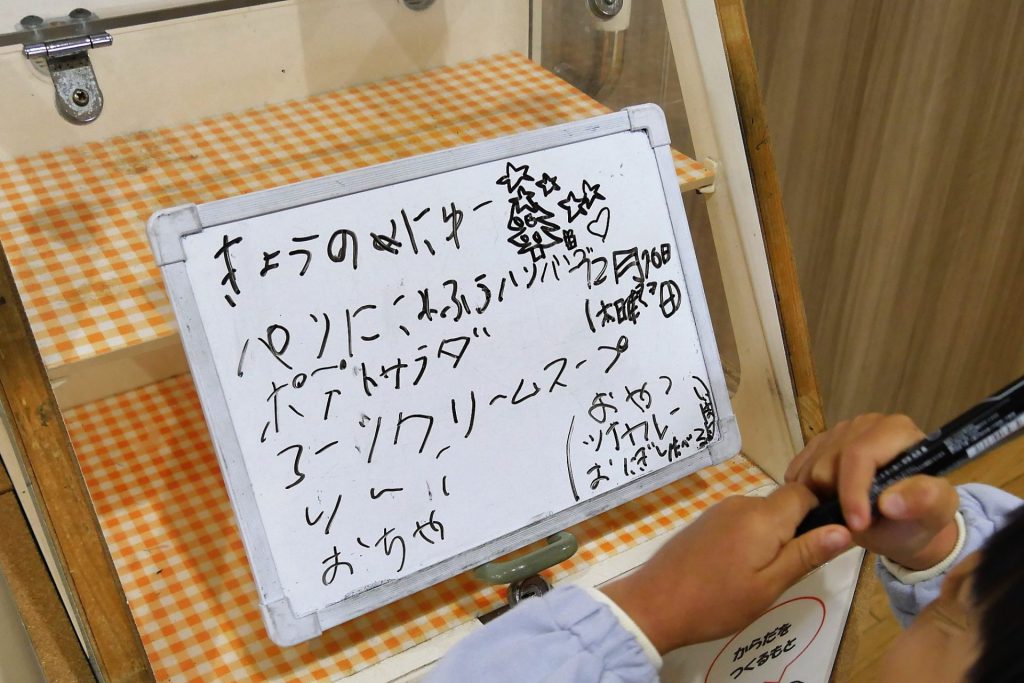 きょうのめにゅー
12月16日
火曜日
パンにこれふうハンバーグ
ポテトサラダ
コーンクリームスープ
りんご
おちゃ
おやつ
ツナカレー
おにぎり
からだを
つくるもと